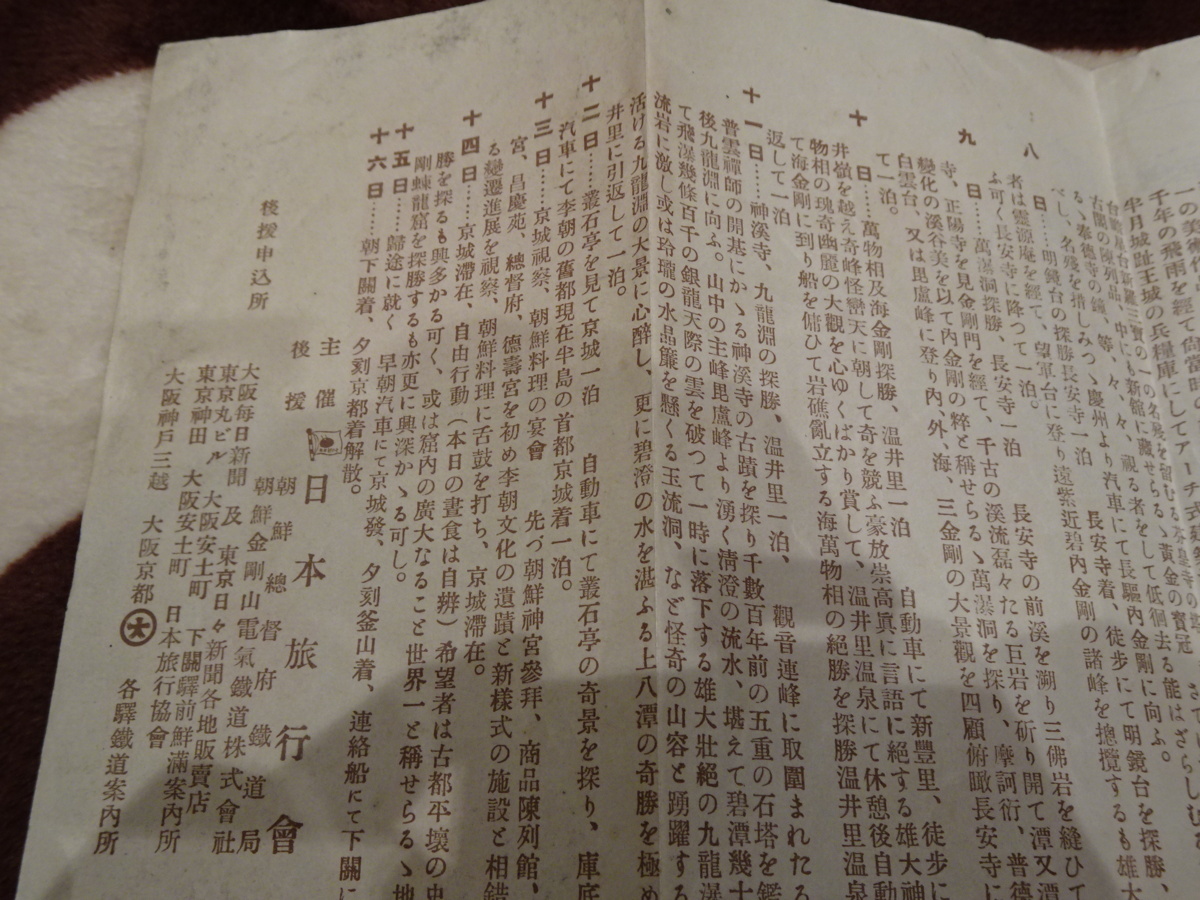 千年の飛雨を經て尚當時
半月城趾王城の兵糧庫にしてアーチ式
古蘭の陳列品、中にも新館に藏せらるゝ黃金の寶冠
るゝ奉德寺の鐘、等々、々、視る者をして低徊去る能はざらしむ
べし、名殘を惜しみつゝ慶州より汽車にて長驅內金剛に向ふ。
八日……明鏡台の探勝長安寺一泊 長安寺着、徒步にて明鏡台を探勝、
者は靈源庵を經て、望軍台に登り遠紫近碧內金剛の諸峰を摠攬するも雄大
ふ可く長安寺に降つて一泊。
九日……萬瀑洞探勝、長安寺一泊 長安寺の前溪を溯り三佛岩を縫ひて
寺、正陽寺を見金剛門を經て、千古の溪流磊々たる巨岩を斫り開て潭又潭
變化の溪谷美を以て內金剛の粹と稱せらるゝ萬瀑洞を探り、摩訶衍、普德
白雲台、又は毘盧峰に登り內、外、海、三金剛の大景觀を四顧俯瞰長安寺に
て一泊。
十日……萬物相及海金剛探勝、溫井里一泊 自動車にて新豐里、徒步に
井嶺を越え奇峰怪巒天に朝して奇を競ふ豪放崇高眞に言語に絕する雄大神
物相の瑰奇幽麗の大觀を心ゆくばかり賞して、溫井里溫泉にて休憩後自動
て海金剛に到り船を傭ひて岩礁亂立する海萬物相の絕勝を探勝溫井里溫泉
返して一泊
十一日……神溪寺、九龍淵の探勝、溫井里一泊、 觀音連峰に取圍まれたる
普雲禪師の開基にかゝる神溪寺の古蹟を探り千數百年前の五重の石塔を鑑
後九龍淵に向ふ。山中の主峰毘盧峰より湧く淸澄の流水、堪えて碧潭幾十
て飛瀑幾條百千の銀龍天際の雲を破つて一時に落下する雄大壯絕の九龍瀑
流岩に激し或は玲瓏の水晶簾を懸くる玉流洞、など怪奇の山容と踴躍する
活ける九龍淵の大景に心醉し、更に碧澄の水を湛ふる上八潭の奇勝を極め
井里に引返して一泊。
十二日……叢石亭を見て京城一泊 自動車にて叢石亭の奇景を探り、庫底
汽車にて李朝の舊都現在半島の首都京城着一泊。
十三日……京城視察、朝鮮料理の宴會 先づ朝鮮神宮參拜、商品陳列館、
宮、昌慶苑、總督府、德壽宮を初め李朝文化の遺蹟と新樣式の施設と相錯
る變遷進展を視察、朝鮮料理に舌鼓を打ち、京城滯在。
十四日……京城滯在、自由行動(本日の晝食は自辨)希望者は古都平壤の史
勝を探るも興多かる可く、或は窟內の廣大なること世界一と稱せらるゝ地
剛蝀龍窟を探勝するも亦更に興深かゝる可し。
十五日……歸途に就く 早朝汽車にて京城發、夕刻釜山着、連絡船にて下關に
十六日……朝下關着、夕刻京都着解散。
主催 日本旅行會
後援 朝鮮總督府鐵道局
朝鮮金剛山電氣鐵道株式會社
後援申込所
大阪每日新聞 及 東京日々新聞各地販賣店
東京丸ビル 大阪安土町 下關驛前鮮滿案內所
東京神田 大阪安土町 日本旅行協會
大阪神戶三越 大阪京都 大 各驛鐵道案內所